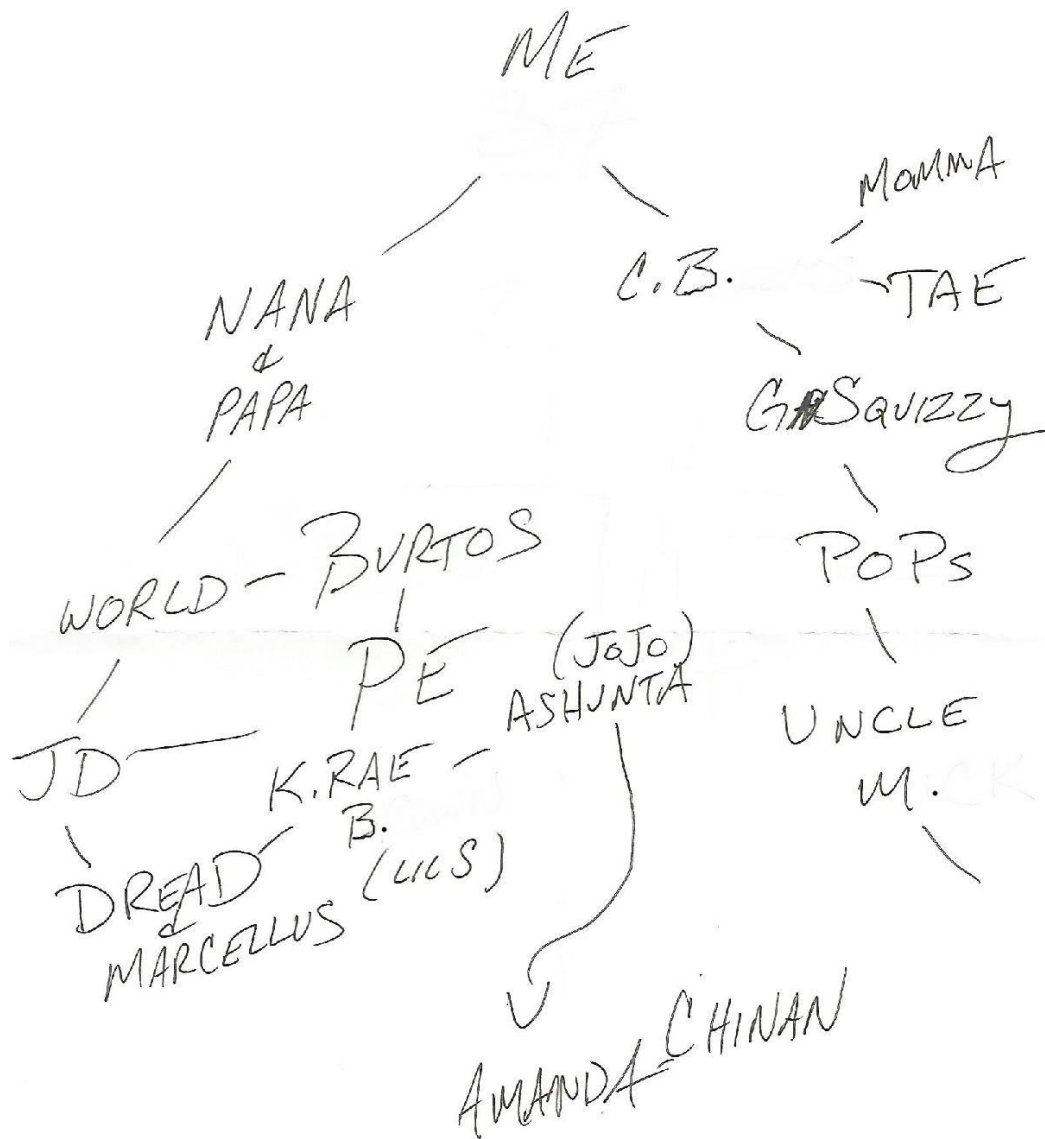 ME
MOMMA
C.B.
TAE
NANA
&
PAPA
SQUIZZY
POPS
WORLD - BURTOS
PE
(JOJO)
ASHUNTA
UNCLE
M.
JD
K.RAE
B.
(LILS)
DREAD
&
MARCELLUS
AMANDA - CHINAN